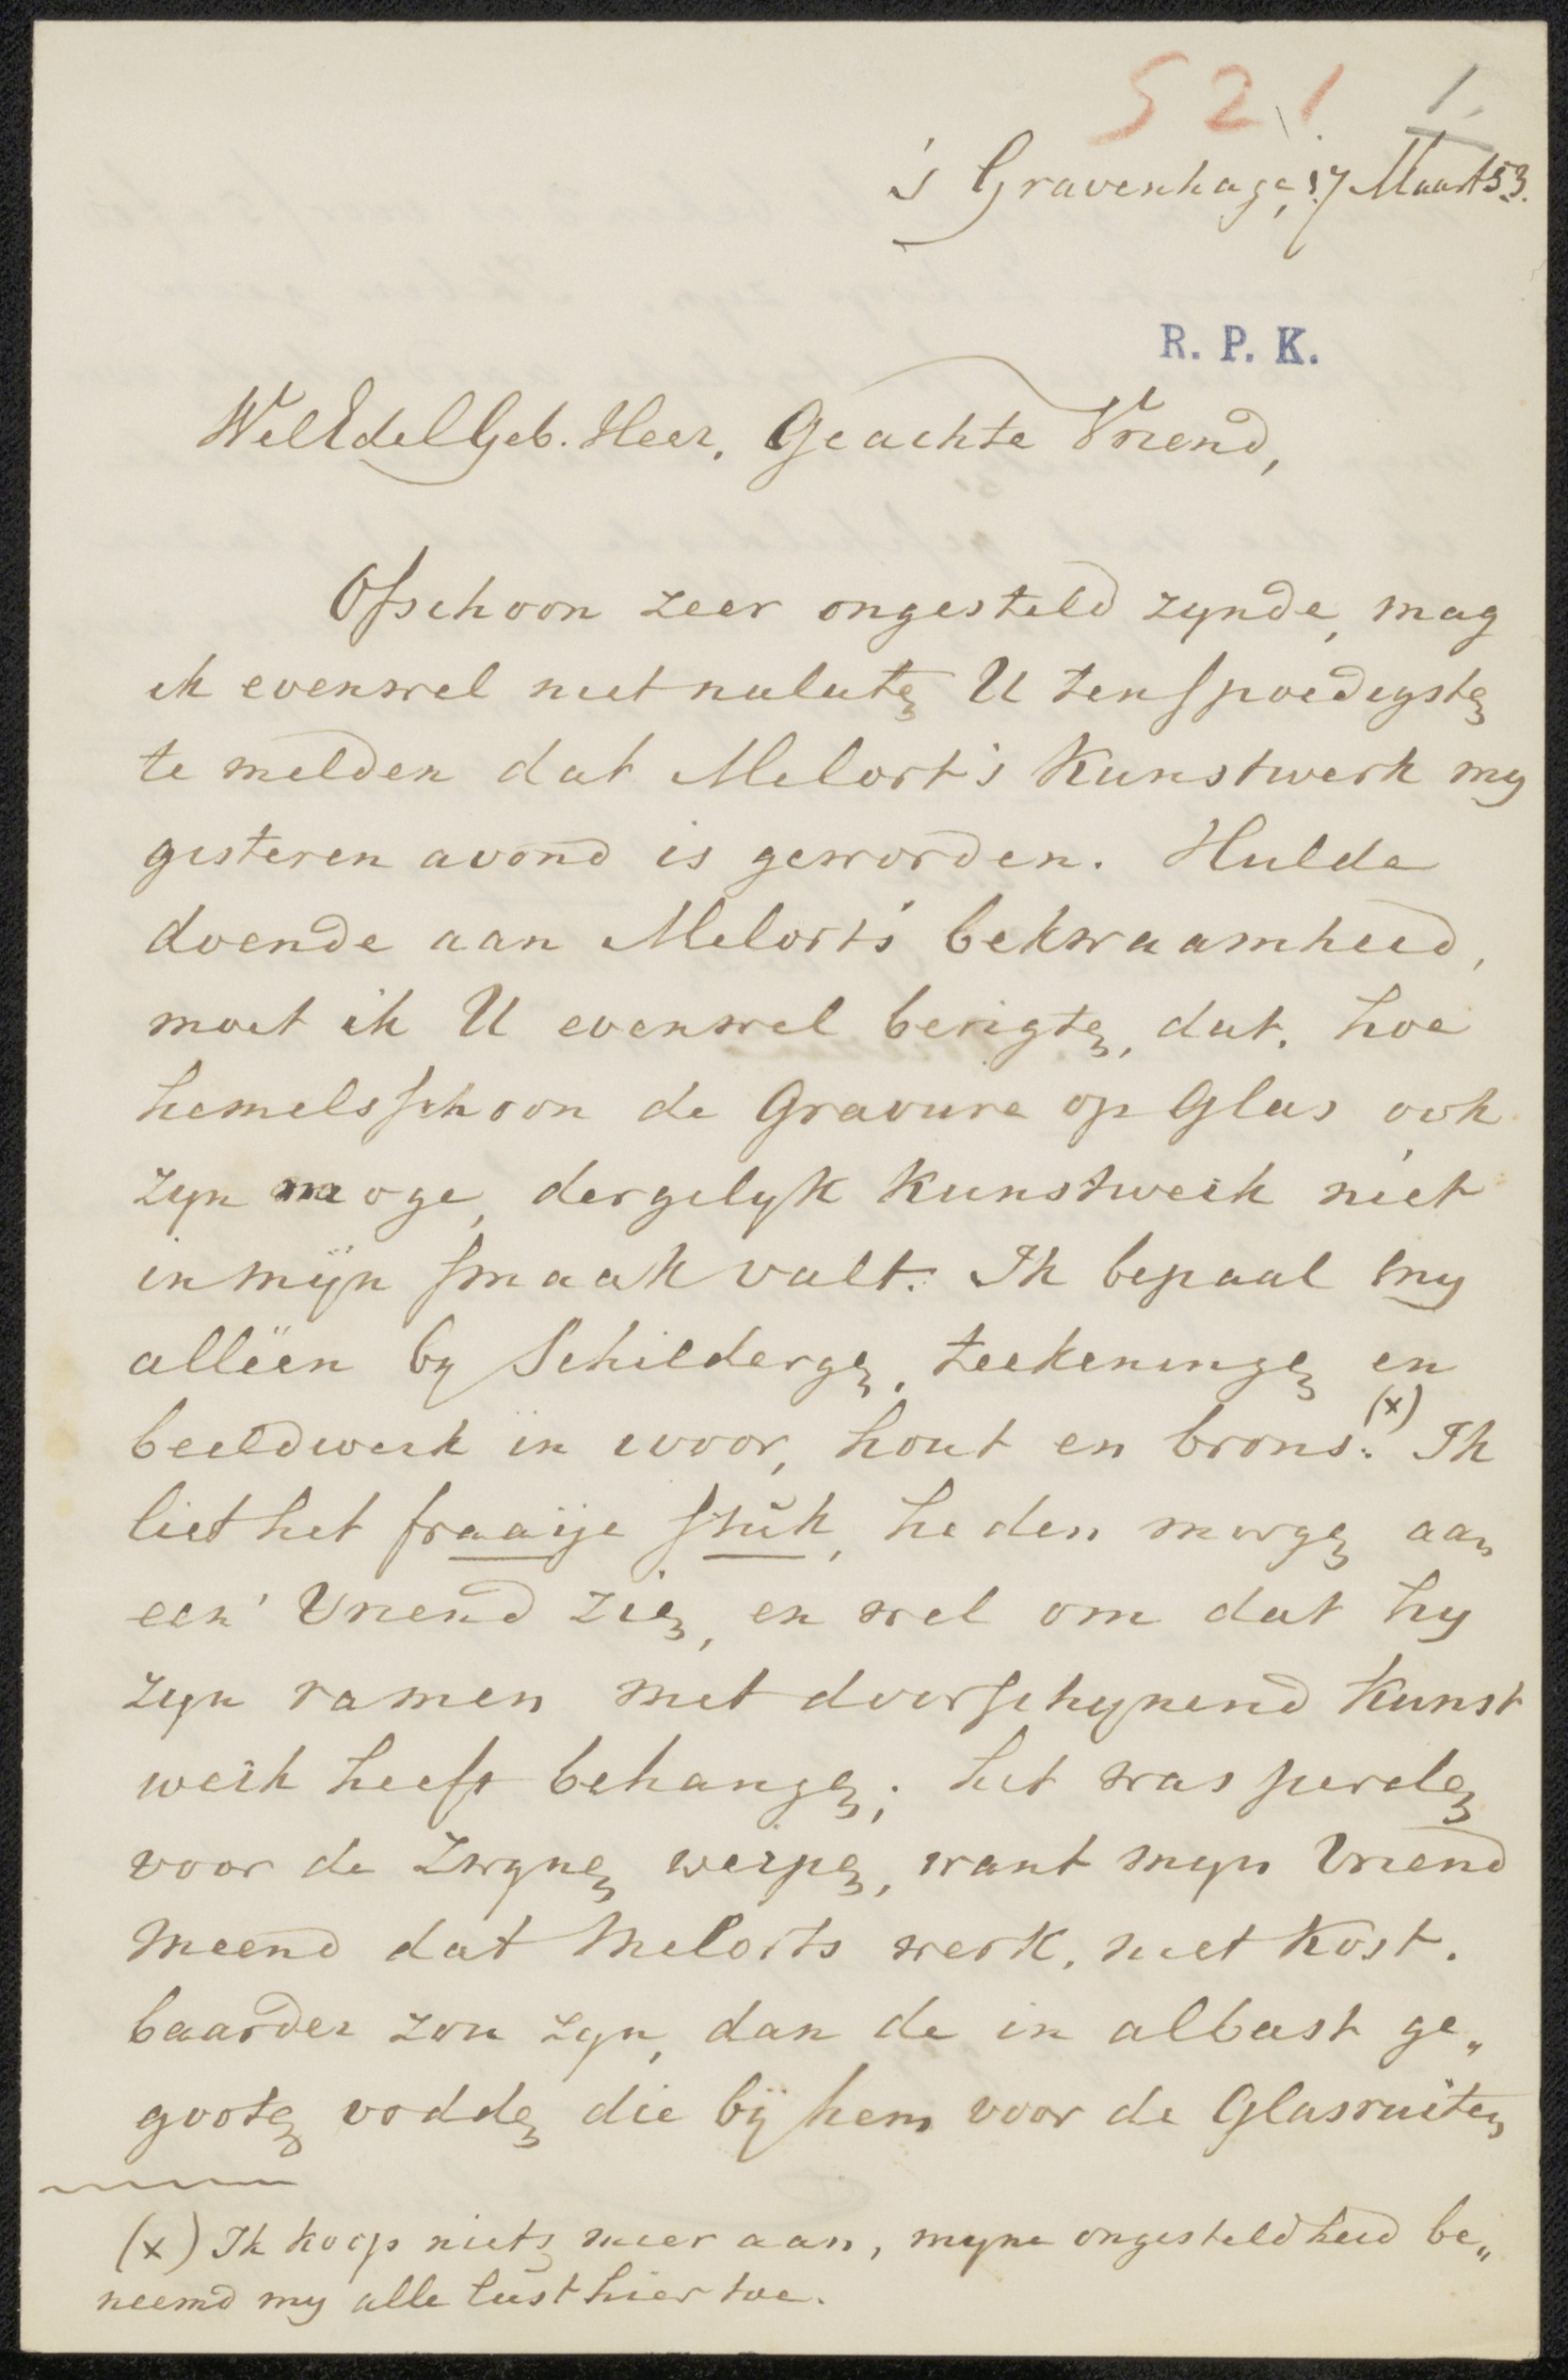 521 1.
's Gravenhage, 17 Maart 53.
R. P. K.
WelEdelGeb. Heer, Geachte Vriend,
Ofschoon zeer ongesteld zynde, mag
ik evenwel niet nalaten U ten spoedigsten
te melden dat Melort's Kunstwerk my
gisteren avond is geworden. Hulde
doende aan Melort's bekwaamheid,
moet ik U evenwel berigten, dat, hoe
hemelsschoon de Gravure op Glas ook
zyn moge, dergelyk Kunstwerk niet
in mijn smaak valt. Ik bepaal my
alléén by Schilderyen, teekeningen en
beeldwerk in ivoor, hout en brons. (x) Ik
liet het fraaije stuk, heden morgen aan
een' Vriend zien, en wel om dat hy
zyn ramen met doorschynend Kunst
werk heeft behangen; het was perelen
voor de Zwynen werpen, want myn Vriend
meend dat Melorts werk, niet Kost.
baarder zou zyn, dan de in albast ge„
gooten vodden die bij hem voor de Glasruiten
(x) Ik koop niets meer aan, myne ongesteldheid be„
neemd my alle lust hier toe.